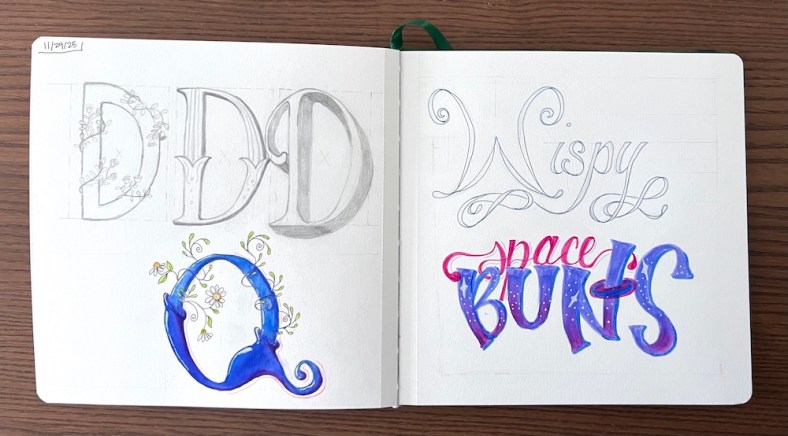 11/29/25
D D D
Q
Wispy
space
BUNS